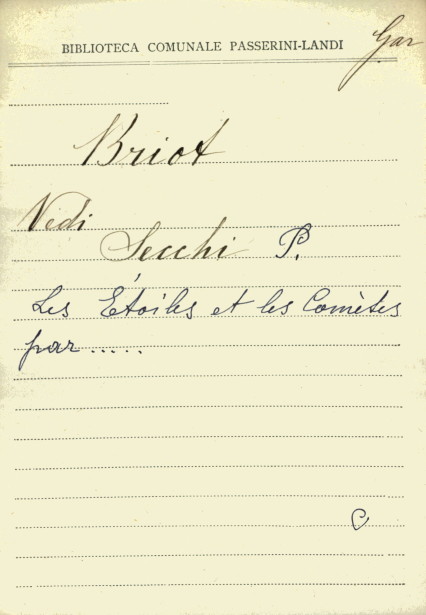 BIBLIOTECA COMUNALE PASSERINI-LANDI
Gar
Briot
Vedi
Secchi P.
Les Étoiles et les Comètes
par.....
C